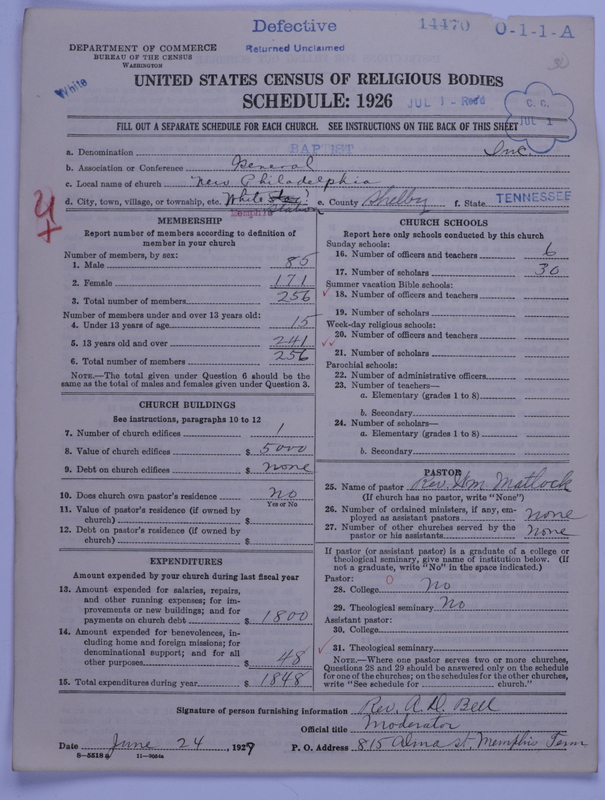 Defective
14470 O-1-1-A
Returned Unclaimed
DEPARTMENT OF COMMERCE
BUREAU OF THE CENSUS
WASHINGTON
White
UNITED STATES CENSUS OF RELIGIOUS BODIES
SCHEDULE: 1926
JUL 1 - Rec'd
C. C.
JUL 1
FILL OUT A SEPARATE SCHEDULE FOR EACH CHURCH. SEE INSTRUCTIONS ON THE BACK OF THIS SHEET
a. Denomination BAPTIST Inc.
b. Association or Conference General
c. Local name of church New Philadelphia
d. City, town, village, or township, etc. White Sta. Station Memphis e. County Shelby f. State TENNESSEE
MEMBERSHIP
Report number of members according to definition of
member in your church
Number of members, by sex:
1. Male 85
2. Female 171
3. Total number of members 256
Number of members under and over 13 years old:
4. Under 13 years of age 15
5. 13 years old and over 241
6. Total number of members 256
NOTE.—The total given under Question 6 should be the
same as the total of males and females given under Question 3.
CHURCH BUILDINGS
See instructions, paragraphs 10 to 12
7. Number of church edifices 1
8. Value of church edifices $ 5000
9. Debt on church edifices $ none
10. Does church own pastor's residence no
Yes or No
11. Value of pastor's residence (if owned by
church) $
12. Debt on pastor's residence (if owned by
church) $
EXPENDITURES
Amount expended by your church during last fiscal year
13. Amount expended for salaries, repairs,
and other running expenses; for im-
provements or new buildings; and for
payments on church debt $ 1800
14. Amount expended for benevolences, in-
cluding home and foreign missions; for
denominational support; and for all
other purposes $ 48
15. Total expenditures during year $ 1848
CHURCH SCHOOLS
Report here only schools conducted by this church
Sunday schools:
16. Number of officers and teachers 6
17. Number of scholars 30
Summer vacation Bible schools:
18. Number of officers and teachers
19. Number of scholars
Week-day religious schools:
20. Number of officers and teachers
21. Number of scholars
Parochial schools:
22. Number of administrative officers
23. Number of teachers—
a. Elementary (grades 1 to 8)
b. Secondary
24. Number of scholars—
a. Elementary (grades 1 to 8)
b. Secondary
PASTOR
25. Name of pastor Rev. Wm. Matlock
(If church has no pastor, write "None")
26. Number of ordained ministers, if any, em-
ployed as assistant pastors none
27. Number of other churches served by the
pastor or his assistants none
If pastor (or assistant pastor) is a graduate of a college or
theological seminary, give name of institution below. (If
not a graduate, write "No" in the space indicated.)
Pastor:
28. College No
29. Theological seminary No
Assistant pastor:
30. College
31. Theological seminary
NOTE.—Where one pastor serves two or more churches,
Questions 28 and 29 should be answered only on the schedule
for one of the churches; on the schedules for the other churches,
write "See schedule for church."
Signature of person furnishing information Rev. A. D. Bell
Official title Moderator
Date June 24, 1927 P. O. Address 815 Alma st. Memphis Tenn
8-5518a 11-9554a